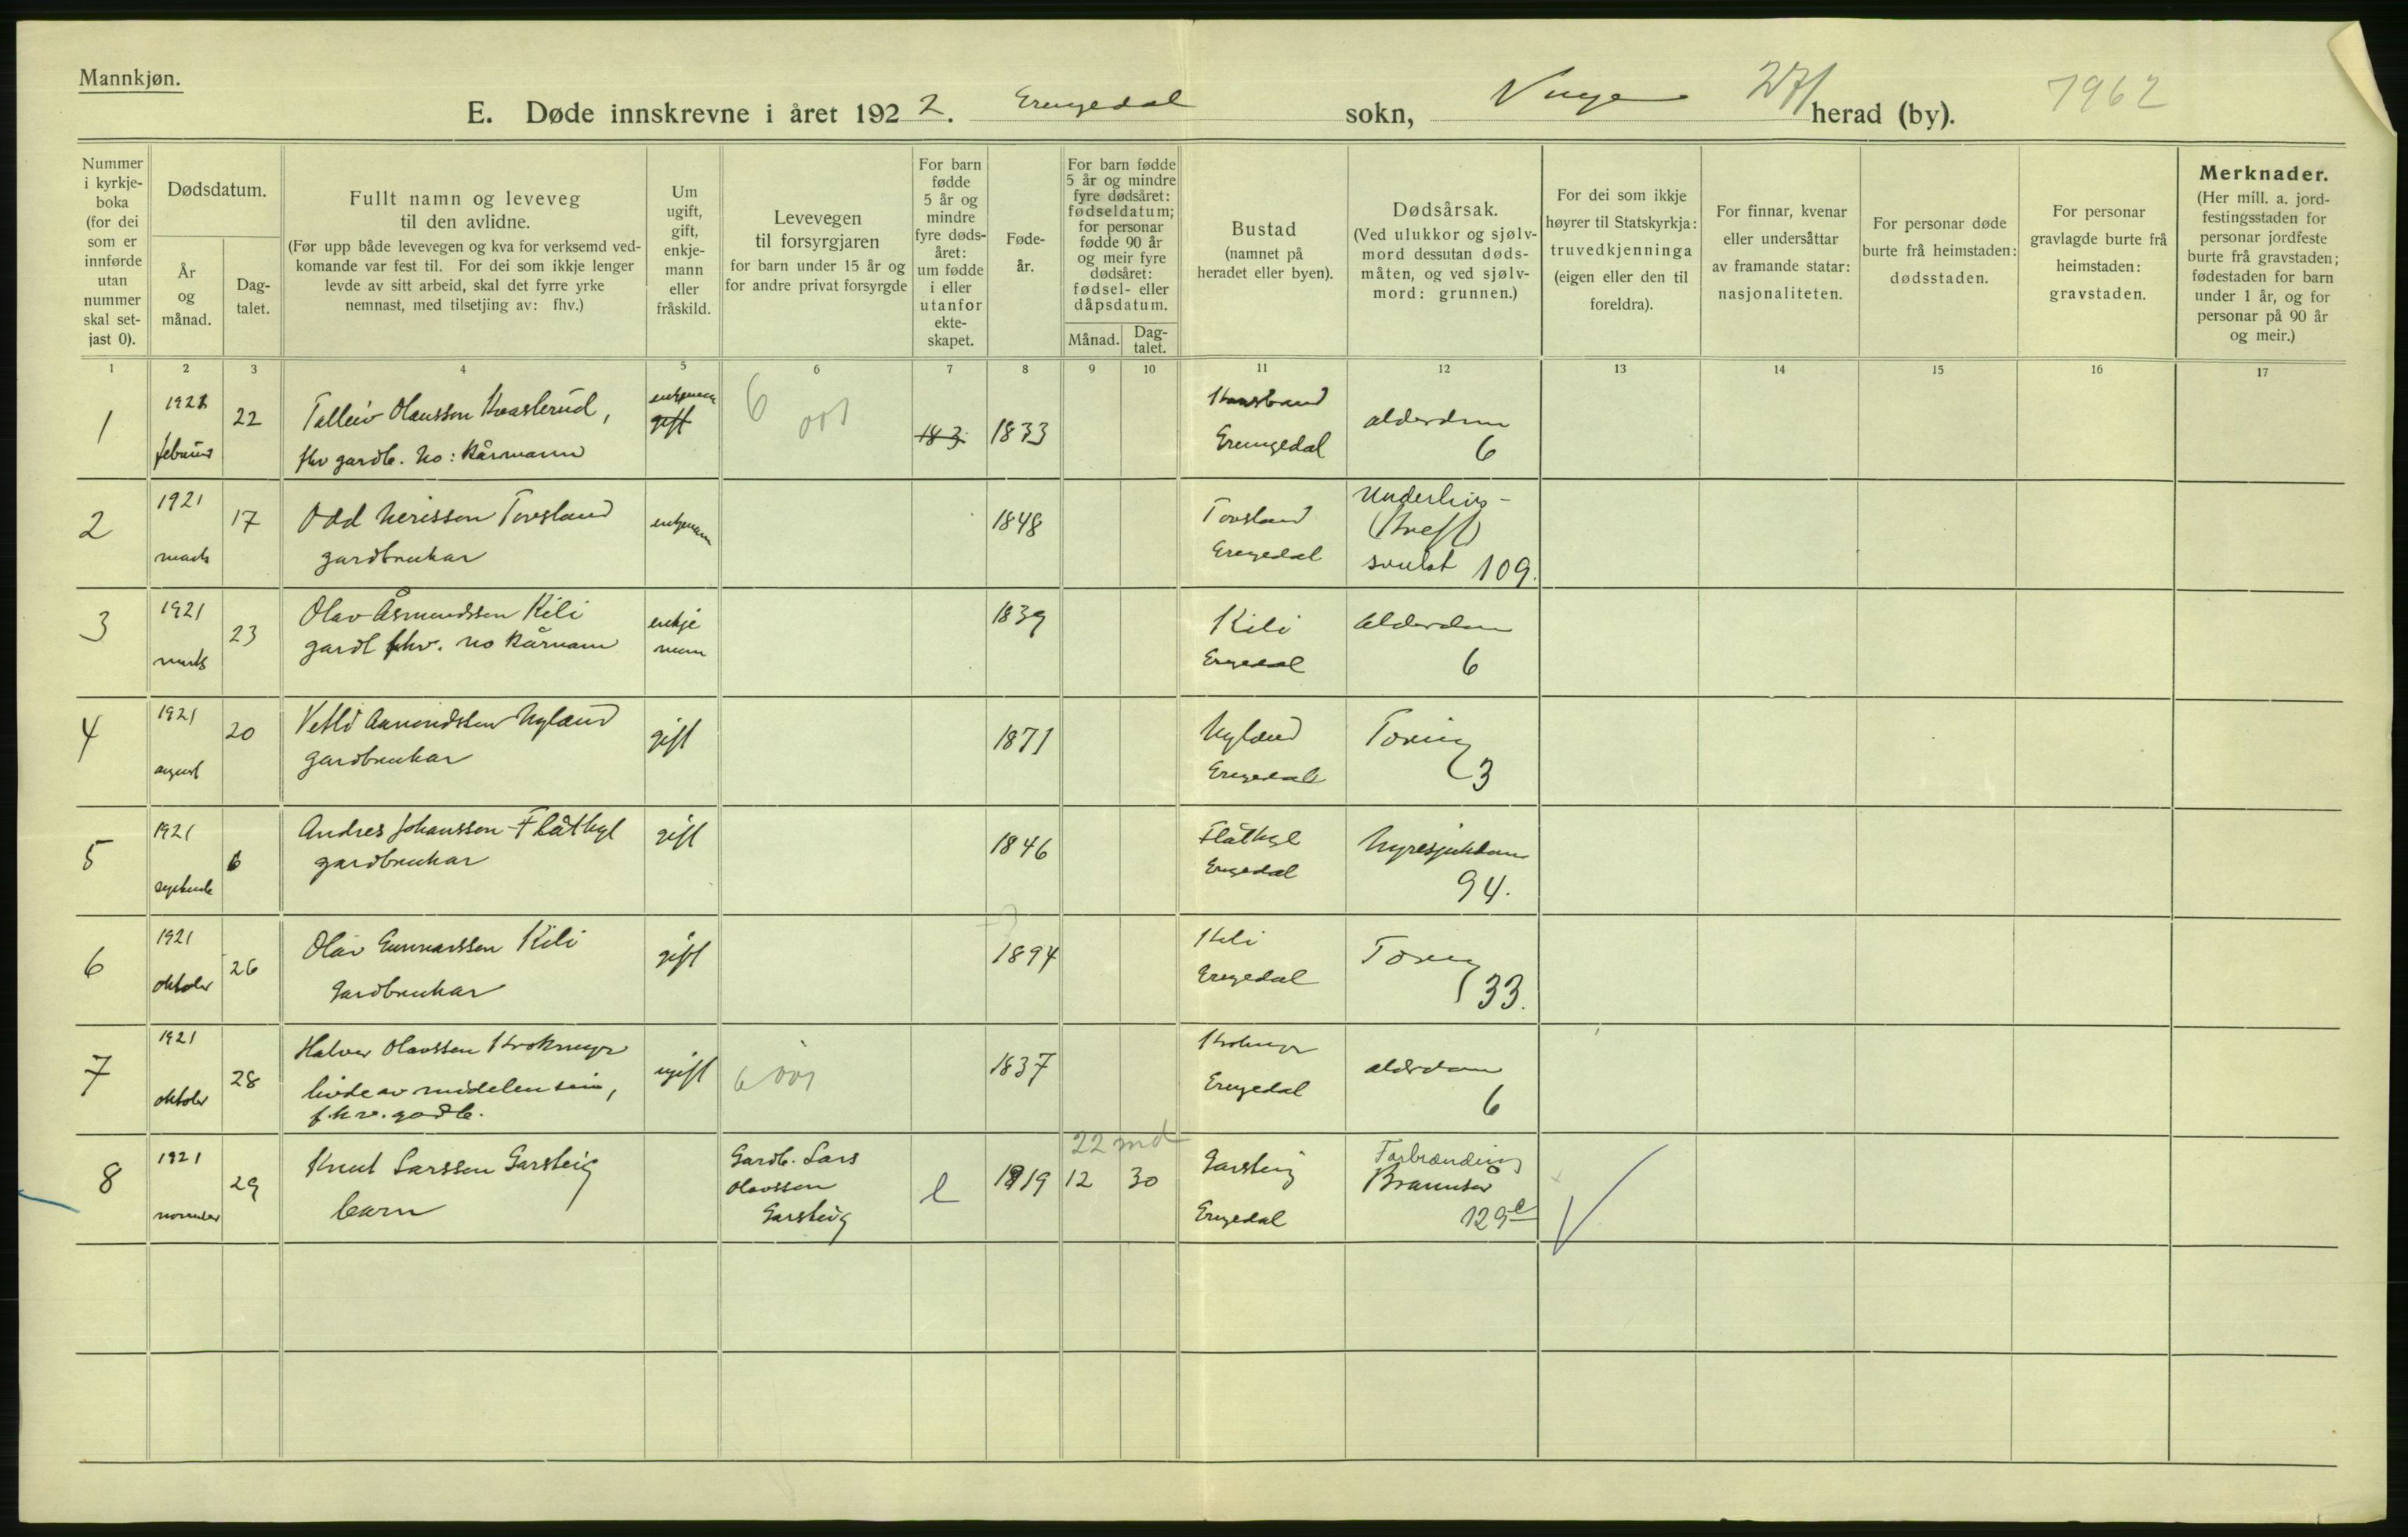 Mannkjøn.
E. Døde innskrevne i året 1922. sokn, 271 herad (by). 1962
Nummer i kyrkje-boka (for dei som er innførde utan nummer skal set-jast 0).
Dødsdatum.
År og månad.
Dag-talet.
Fullt namn og leveveg til den avlidne.
(Før upp både levevegen og kva for verksemd ved-komande var fest til. For dei som ikkje lenger levde av sitt arbeid, skal det fyrre yrke nemnast, med tilsetjing av: fhv.)
Um ugift, gift, enkje-mann eller fråskild.
Levevegen til forsyrgjaren for barn under 15 år og for andre privat forsyrgde
For barn fødde 5 år og mindre fyre døds-året: um fødde i eller utanfor ekte-skapet.
Føde-år.
For barn fødde 5 år og mindre fyre dødsåret: fødseldatum; for personar fødde 90 år og meir fyre dødsåret: fødsel- eller dåpsdatum.
Månad.
Dag-talet.
Bustad (namnet på heradet eller byen).
Dødsårsak.
(Ved ulukkor og sjølv-mord dessutan døds-måten, og ved sjølv-mord: grunnen.)
For dei som ikkje høyrer til Statskyrkja: truvedkjenninga (eigen eller den til foreldra).
For finnar, kvenar eller undersåttar av framande statar: nasjonaliteten.
For personar døde burte frå heimstaden: dødsstaden.
For personar gravlagde burte frå heimstaden: gravstaden.
Merknader.
(Her mill. a. jord-festingsstaden for personar jordfeste burte frå gravstaden; fødestaden for barn under 1 år, og for personar på 90 år og meir.)
1 2 3 4 5 6 7 8 9 10 11 12 13 14 15 16 17
1 1921 februar 22 Olavsson
fhv gardb. no: kårmann
enkjemann gift 6 001 183 1833 alderdom 6
2 1921 mars 17 Odd Torsland
gardbrukar
enkjemann 1848 Torsland Underlivs-
(kreft)
svulst 109.
3 1921 mars 23 Olav Åsmundssen Kili
gardb fhv. no kårmann
enkje mann 1839 Kili alderdom 6
4 1921 august 20 Nyland
gardbrukar
gift 1871 Nyland Tæring 33
5 1921 6 Andres Johansson Flåthyl
gardbrukar
gift 1846 Flåthyl Nyresjukdom 94.
6 1921 oktober 26 Olav Gunnarssen Kili
Gardbrukar
gift 1894 Kili Tæring 33.
7 1921 oktober 28 Halvor Olavssen
livde av midelen sine,
f.h.v. gardb.
ugift 6 001 1837 alderdom 6
8 1921 november 29 Knut Larssen Garsteig
barn
Gardb. Lars
Olavssen
Garsteig
e 1919 22 md 12 30 Garsteig Forbrænding
Brannsår
129 e